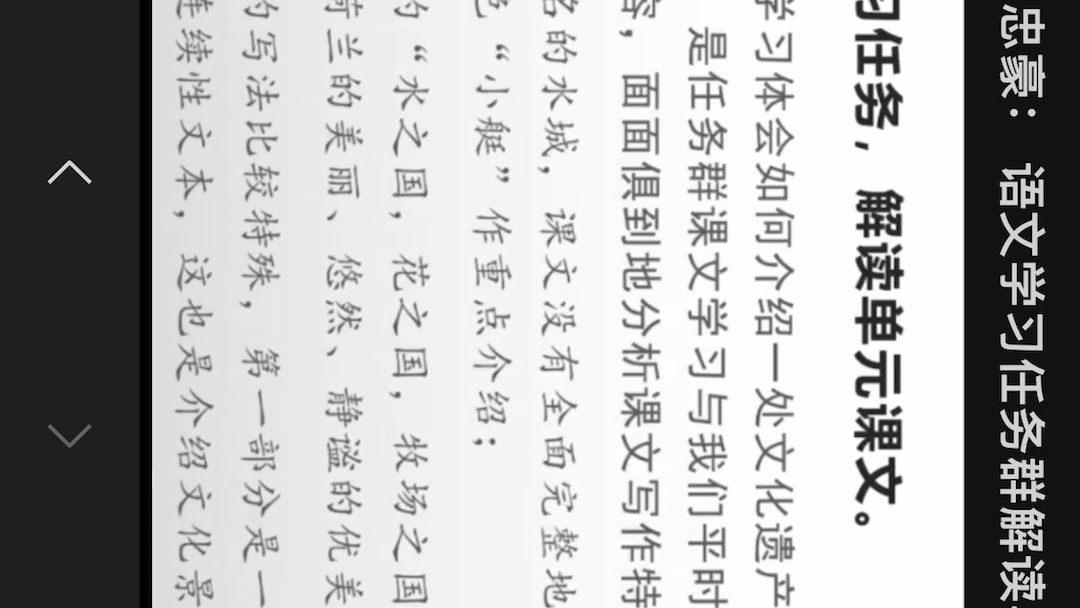 忠豪： 语文学习任务群解读
习任务，解读单元课文。
学习体会如何介绍一处文化遗产
是任务群课文学习与我们平时
容，面面俱到地分析课文写作特
名的水城，课文没有全面完整地
色“小艇”作重点介绍；
的“水之国，花之国，牧场之国
荷兰的美丽、悠然、静谧的优美
的写法比较特殊，第一部分是一
连续性文本，这也是介绍文化景